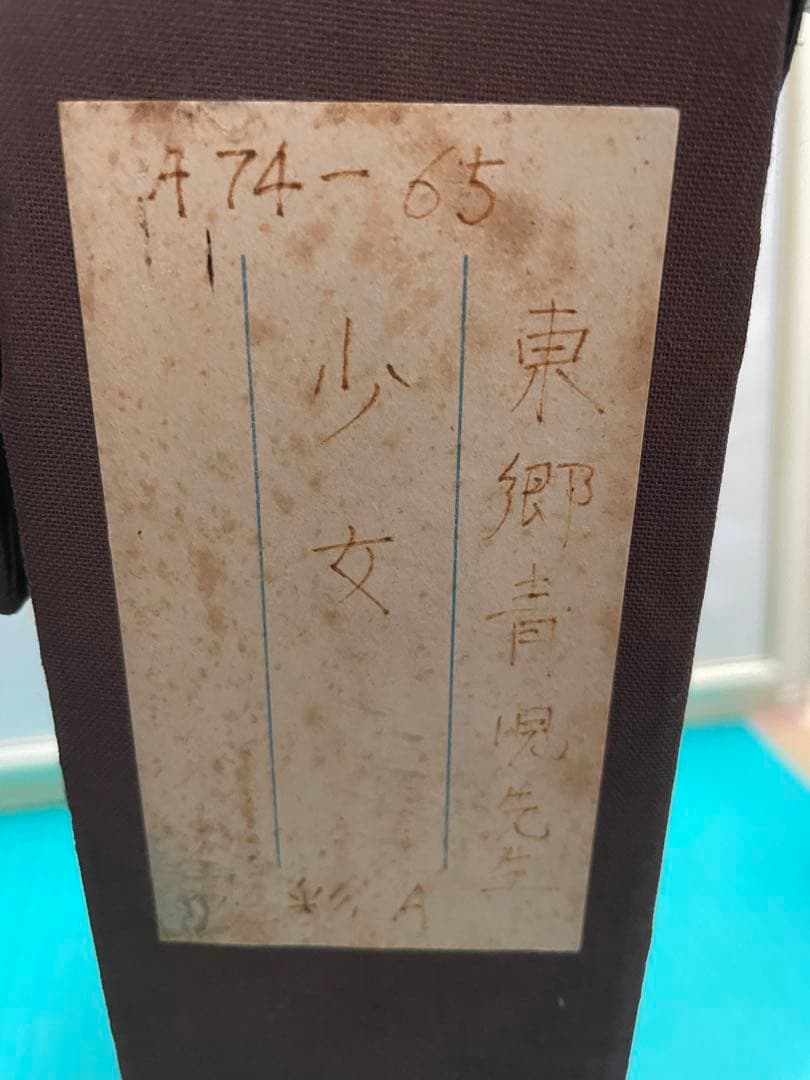 A74-65
東郷青児先生
少女
彩 A